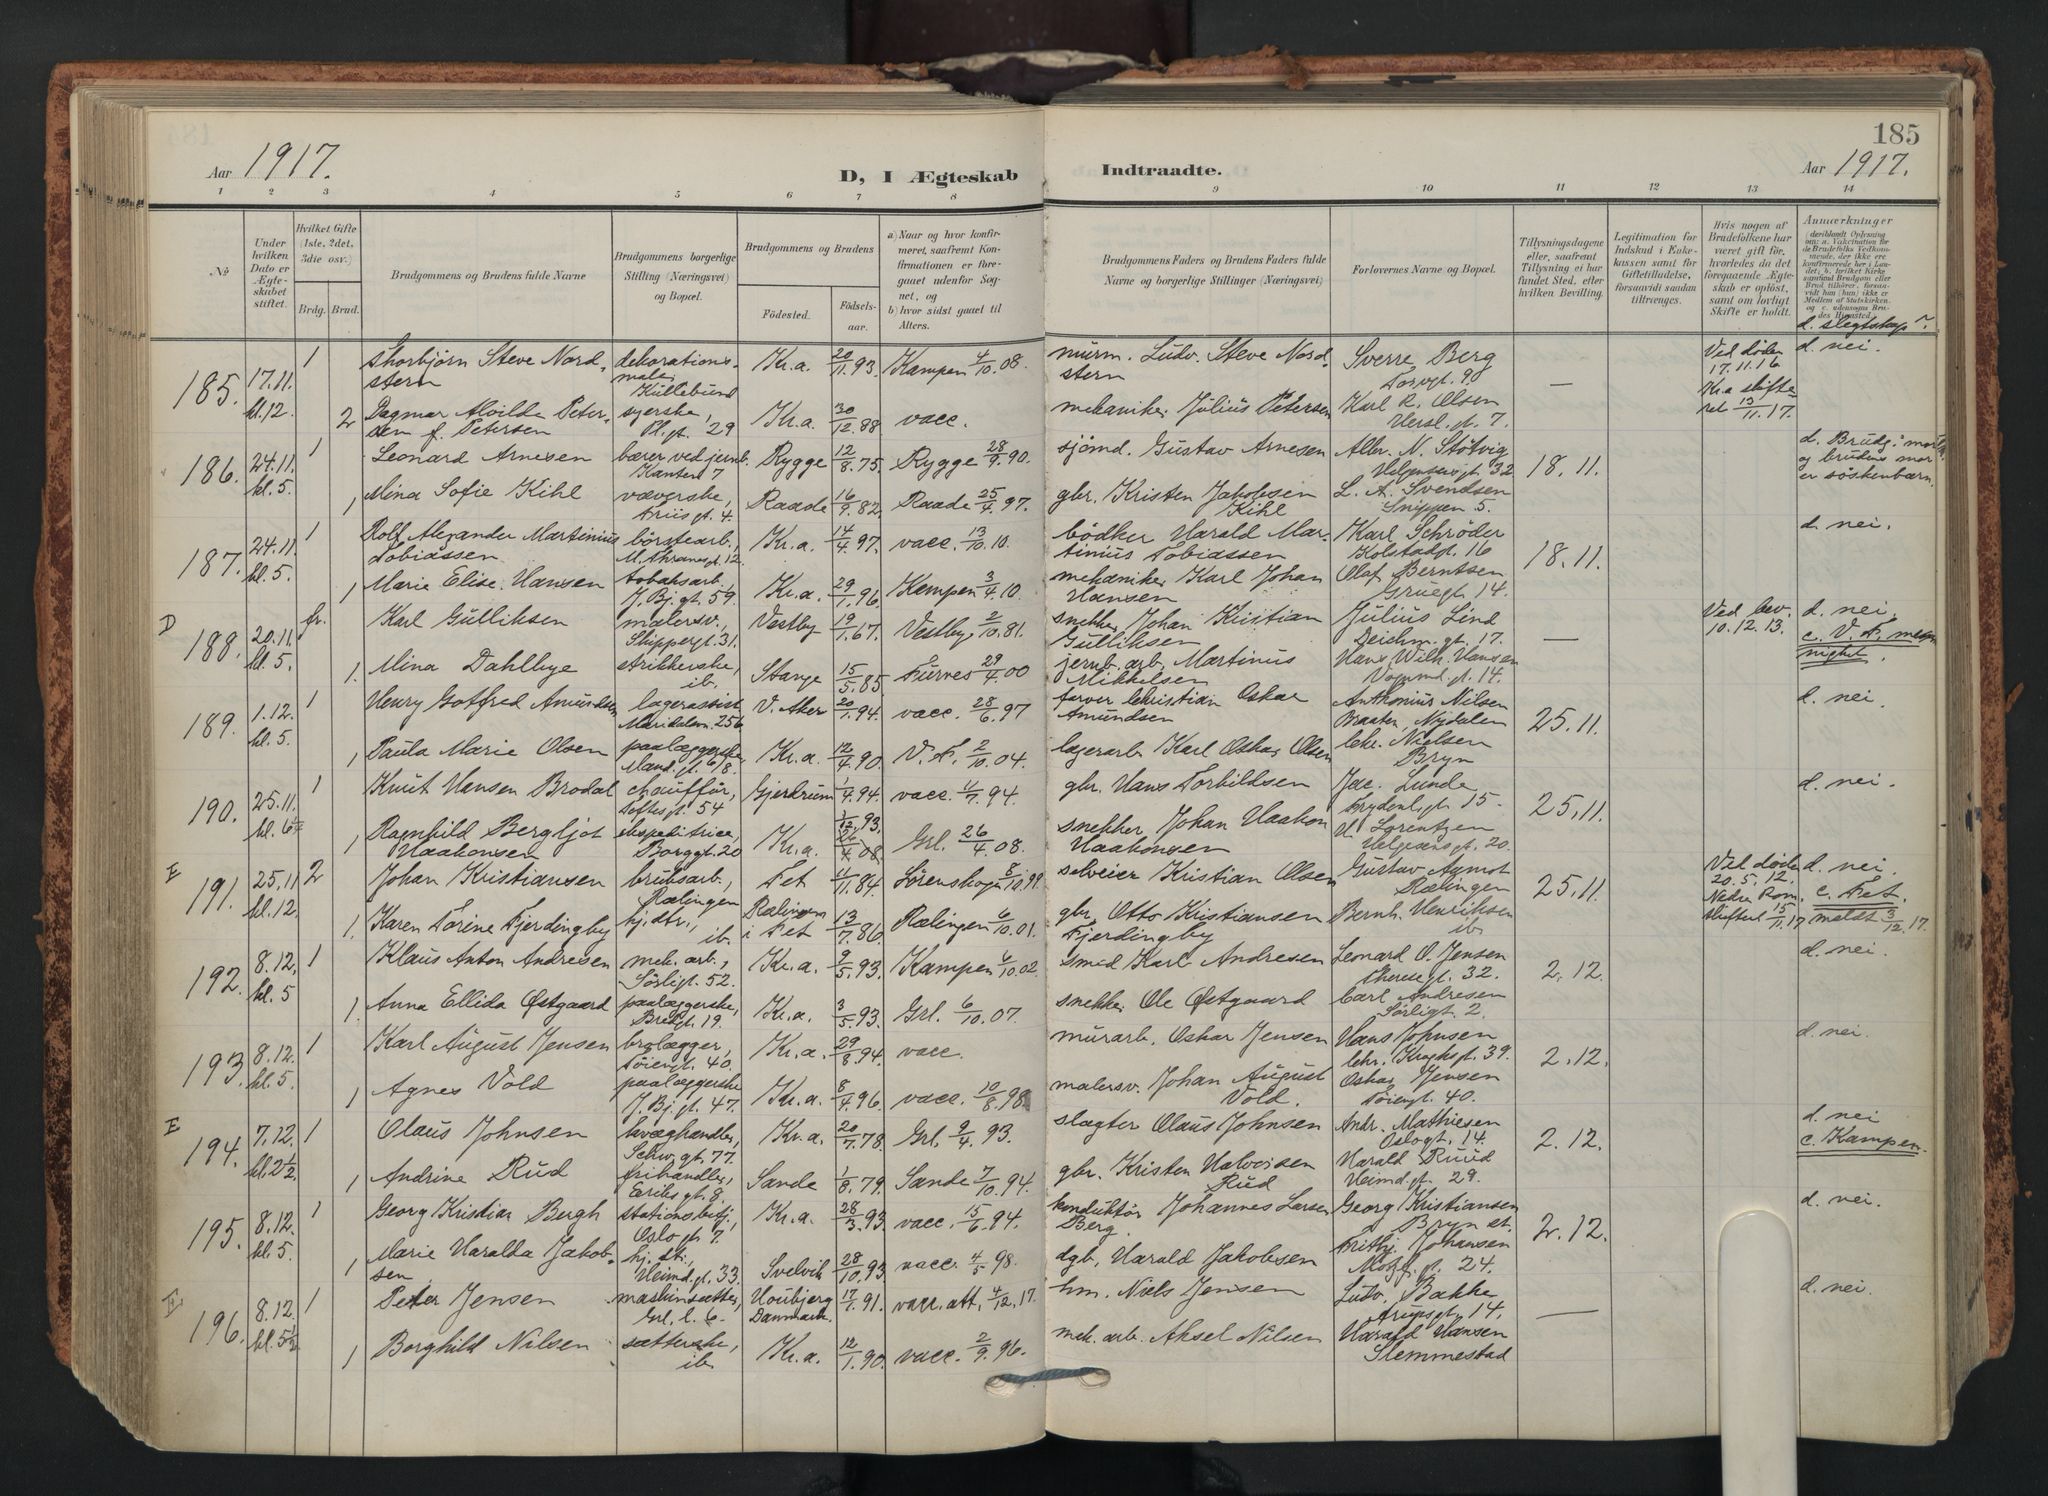 185
Aar 1917.
D, I Ægteskab Indtraadte.
Aar 1917.
1 2 3 4 5 6 7 8 9 10 11 12 13 14
No
Under hvilken Dato er Ægteskabet stiftet.
Hvilket Gifte (1ste, 2det, 3die osv.)
Brdg. Brud.
Brudgommens og Brudens fulde Navne
Brudgommens borgerlige Stilling (Næringsvei) og Bopæl.
Brudgommens og Brudens
Födested. Födselsaar.
a) Naar og hvor konfirmeret, saafremt Konfirmationen er foregaaet udenfor Sognet, og
b) hvor sidst gaaet til Alters.
Brudgommens Faders og Brudens Faders fulde Navne og borgerlige Stillinger (Næringsvei)
Forlovernes Navne og Bopæl.
Tillysningsdagene eller, saafremt Tillysning ei har fundet Sted, efter hvilken Bevilling.
Legitimation for Indskud i Enkekassen samt for Giftetilladelse, forsaavidt saadan tiltrænges.
Hvis nogen af Brudefolkene har været gift för, hvorledes da det foregaaende Ægteskab er oplöst, samt om lovligt Skifte er holdt.
Anmærkninger
d. slegtskap?
185. 17.11. kl.12. 1 Thorbjörn Steve Nordstern dekorationsmaler, Kullebund Kr.a. 20/11.93. Kampen 4/10.08. murm. Ludv. Steve Nordstern Sverre Berg Torvgt. 9. — Ved döden 17.11.16 Kr.a skifteret 13/11.17. d. nei.
2 Dagmar Alvilde Petersen f. Petersen syerske, Pl.gt. 29 Kr.a. 30/12.88 vacc. mekaniker Julius Petersen Karl R. Olsen Hersl.gt. 7.
186. 24.11. kl.5. 1 Leonard Arnesen bærer ved jernb. Kanteng 7 Rygge 12/8.75. Rygge 28/9.90. sjömd. Gustav Arnesen Albr. N. Stötvig Helgensgt. 32 18.11. d. Brudg.s mor og brudens mor er söskenbarn.
1 Mina Sofie Kihl væverske, Friisgt. 4. Raade 16/9.82. Raade 25/4.97. gbr. Kristen Jakobsen Kihl L. A. Svendsen Snippen 5.
187. 24.11. kl.5. 1 Rolf Alexander Martinius Tobiassen börstearb., M. Thranesgt. 12. Kr.a. 14/4.97. vacc. 13/10.10. bödker Harald Martinius Tobiassen Karl Schröder Kolstadgt. 16 18.11. d. nei.
1 Marie Elise Hansen tobaksarb. J. Bj.gt. 59. Kr.a. 29/1.96. Kampen 3/4.10. mekaniker Karl Johan Hansen Olaf Berntsen Gruegt. 14.
D 188. 20.11. kl.5. fr. Karl Gulliksen malersv., Skippergt. 31. Vestby 19/1.67. Vestby 2/10.81. snekker Johan Kristian Gulliksen Julius Lind Deichm.gt. 17. — Ved bev. 10.12.13. d. nei. c. V. F. menighet.
1. Mina Dahlbye strikkerske, ib. Stange 15/5.85. Furnes 29/4.00 jernb.arb. Martinus Mikkelsen Hans Wilh. Hansen Vognmd.gt. 14.
189. 1.12. kl.5. 1 Henry Gotfred Amundsen lagerassist. Maridalsv. 256 V. Aker 20/1.94. vacc. 28/6.97 farver Christian Oskar Amundsen Anthonius Nilsen Braaten, Nydalen 25.11. d. nei.
1 Paula Marie Olsen paalæggerske, Mand.gt. 6/8. Kr.a. 12/4.90. V. F. 2/10.04. lagerarb. Karl Oskar Olsen Chr. Nielsen Bryn
190. 25.11. kl. 6½ 1 Knut Hansen Brodal chaufför, Toftesgt. 54 Gjerdrum 1/4.94. vacc. 11/7.94. gbr. Hans Torhildsen Jac. Lunde Frydenl.gt. 15. 25.11. d. nei.
1 Ragnhild Bergljot Haakonsen ekspeditrice, Borggt. 20 Kr.a. 1/12.93. 26/4.08. Grl. 26/4.08. snekker Johan Haakon Haakonsen H. Lorentzen Helgesensgt. 20.
E 191. 25.11 kl.12. 2 Johan Kristiansen brugsarb., Rælingen Fet 11/11.84. Sörenskogen 8/10.99. selveier Kristian Olsen Gustav Agnot Rælingen 25.11. Ved döden 20.5.12. Nedre Rom. skifteret 15/11.17 d. nei. c. Fet. meldt 3/12.17.
1. Karen Torine Fjerdingby hj.dtr., ib. Rælingen i Fet 13/7.86. Rælingen 6/10.01. gbr. Otto Kristiansen Fjerdingby Bernh. Henriksen ib.
192. 8.12. kl.5 1 Klaus Anton Andresen mek. arb., Sörligt. 52. Kr.a. 9/5.93. Kampen 6/10.02. smed Karl Andresen Leonard O. Jensen Theresgt. 32. 2.12. d. nei.
1. Anna Ellida Østgaard paalæggerske, Bredgt. 19. Kr.a. 3/5.93. Grl. 6/10.07. snekker Ole Østgaard Carl Andresen Sörligt. 2.
193. 8.12. kl.5. 1 Karl August Jensen brolægger, Töiengt. 40. Kr.a. 29/8.94. vacc. murarb. Oskar Jensen Hans Johnsen Chr. Kroghsgt. 39. 2.12. d. nei.
1 Agnes Vold paalæggerske J. Bj.gt. 47. Kr.a. 8/4.96. vacc. 10/8.98. malersv. Johan August Vold. Oskar Jensen Töiengt. 40.
E 194. 7.12. kl.2½ 1 Olaus Johnsen kvæghandler, Schw.gt. 77. Kr.a. 20/7.78. Grl. 9/4.93. slagter Olaus Johnsen Andr. Mathiesen Oslogt. 14. 2.12. d. nei c. Kampen.
1 Andrine Rud frihandler, Eriksgt. 8. Sande 1/8.79. Sande 7/10.94. gbr. Kristen Halvorsen Rud Harald Ruud Heimd.gt. 29.
195. 8.12. kl.5. 1 Georg Kristian Bergh stationsbetj., Oslogt. 7. Kr.a. 28/3.93 vacc. 15/6.94. konduktör Johannes Larsen Berg. Georg Kristiansen Bryn st. 2.12. d. nei.
1 Marie Haralda Jakobsen hj. st., Heimd.gt. 33. Svelvik 28/10.93 vacc. 4/5 98. dgb. Harald Jakobsen Frithj. Johansen Motzf.gt. 24.
E 196. 8.12. kl.5½ 1 Peter Jensen maskinsætter, Grl. l. 6. Houbjerg Danmark. 17/1.91. vacc. att. 4/12.17. hm. Niels Jensen Ludv. Bakke Arupsgt. 14. — d. nei.
1 Borghild Nilsen sætterske, ib. Kr.a. 12/1.90. vacc. 2/9.96. mek. arb. Aksel Nilsen Harald Hansen Slemmestad